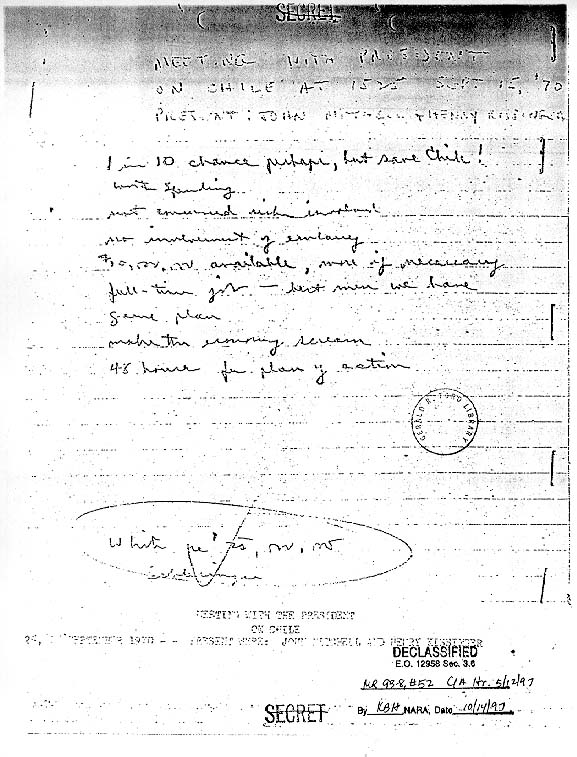 SECRET
MEETING WITH PRESIDENT
ON CHILE AT 1525 SEPT 15, '70
PRESENT: JOHN MITCHELL & HENRY KISSINGER
1 in 10 chance perhaps, but save Chile!
worth spending
not concerned risks involved
no involvement of embassy
$10,000,000 available, more if necessary
full-time job — best men we have
game plan
make the economy scream
48 hours for plan of action
GERALD R. FORD LIBRARY
MEETING WITH THE PRESIDENT
ON CHILE
SEPTEMBER 1970 -- PRESENT WERE: JOHN MITCHELL AND HENRY KISSINGER
DECLASSIFIED
E.O. 12958 Sec. 3.6
MR 98-8, #52 CIA ltr. 5/12/97
By KBH NARA, Date 10/14/97
SECRET